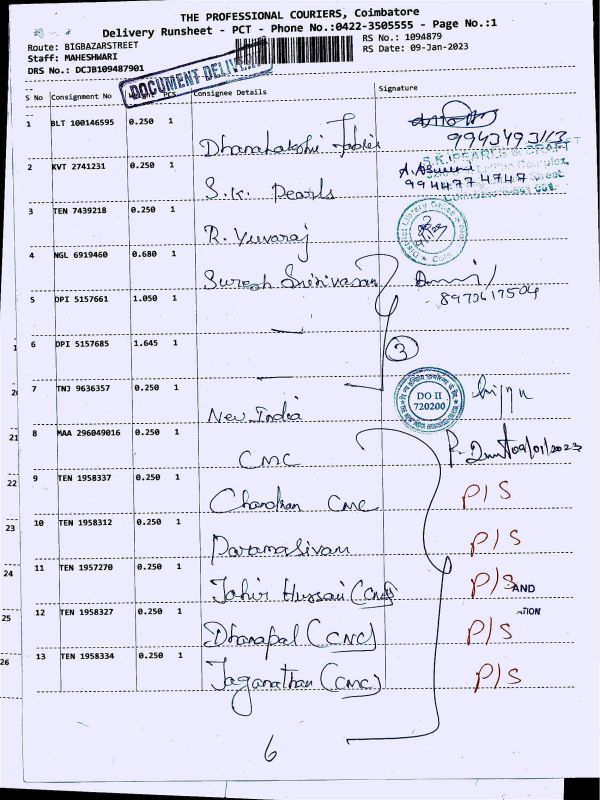 THE PROFESSIONAL COURIERS, Coimbatore
Delivery Runsheet - PCT - Phone No.:0422-3505555 - Page No.:1
Route: BIGBAZARSTREET
RS No.: 1094879
Staff: MAHESHWARI
RS Date: 09-Jan-2023
DRS No.: DCJB109487901
DOCUMENT DELIVE
S No Consignment No PCS Consignee Details Signature
1 BLT 100146595 0.250 1 Dhanalakshmi Fabrics 9943493113
2 KVT 2741231 0.250 1 S.K. Pearls 994477 4747
3 TEN 7439218 0.250 1 R. Yuvaraj
4 NGL 6919460 0.680 1 Suresh Srinivasan 8973617504
5 DPI 5157661 1.050 1
6 DPI 5157685 1.645 1
3
7 TNJ 9636357 0.250 1 New India
DO II
720200
8 MAA 296049016 0.250 1 CMC 09/01/2023
9 TEN 1958337 0.250 1 Chandran CMC P/S
10 TEN 1958312 0.250 1 Paramasivam P/S
11 TEN 1957270 0.250 1 Jahir Hussain (CMC) P/S
AND
12 TEN 1958327 0.250 1 Dhanapal (CMC) P/S
13 TEN 1958334 0.250 1 Jaganathan (CMC) P/S
6
21
22
23
24
25
26